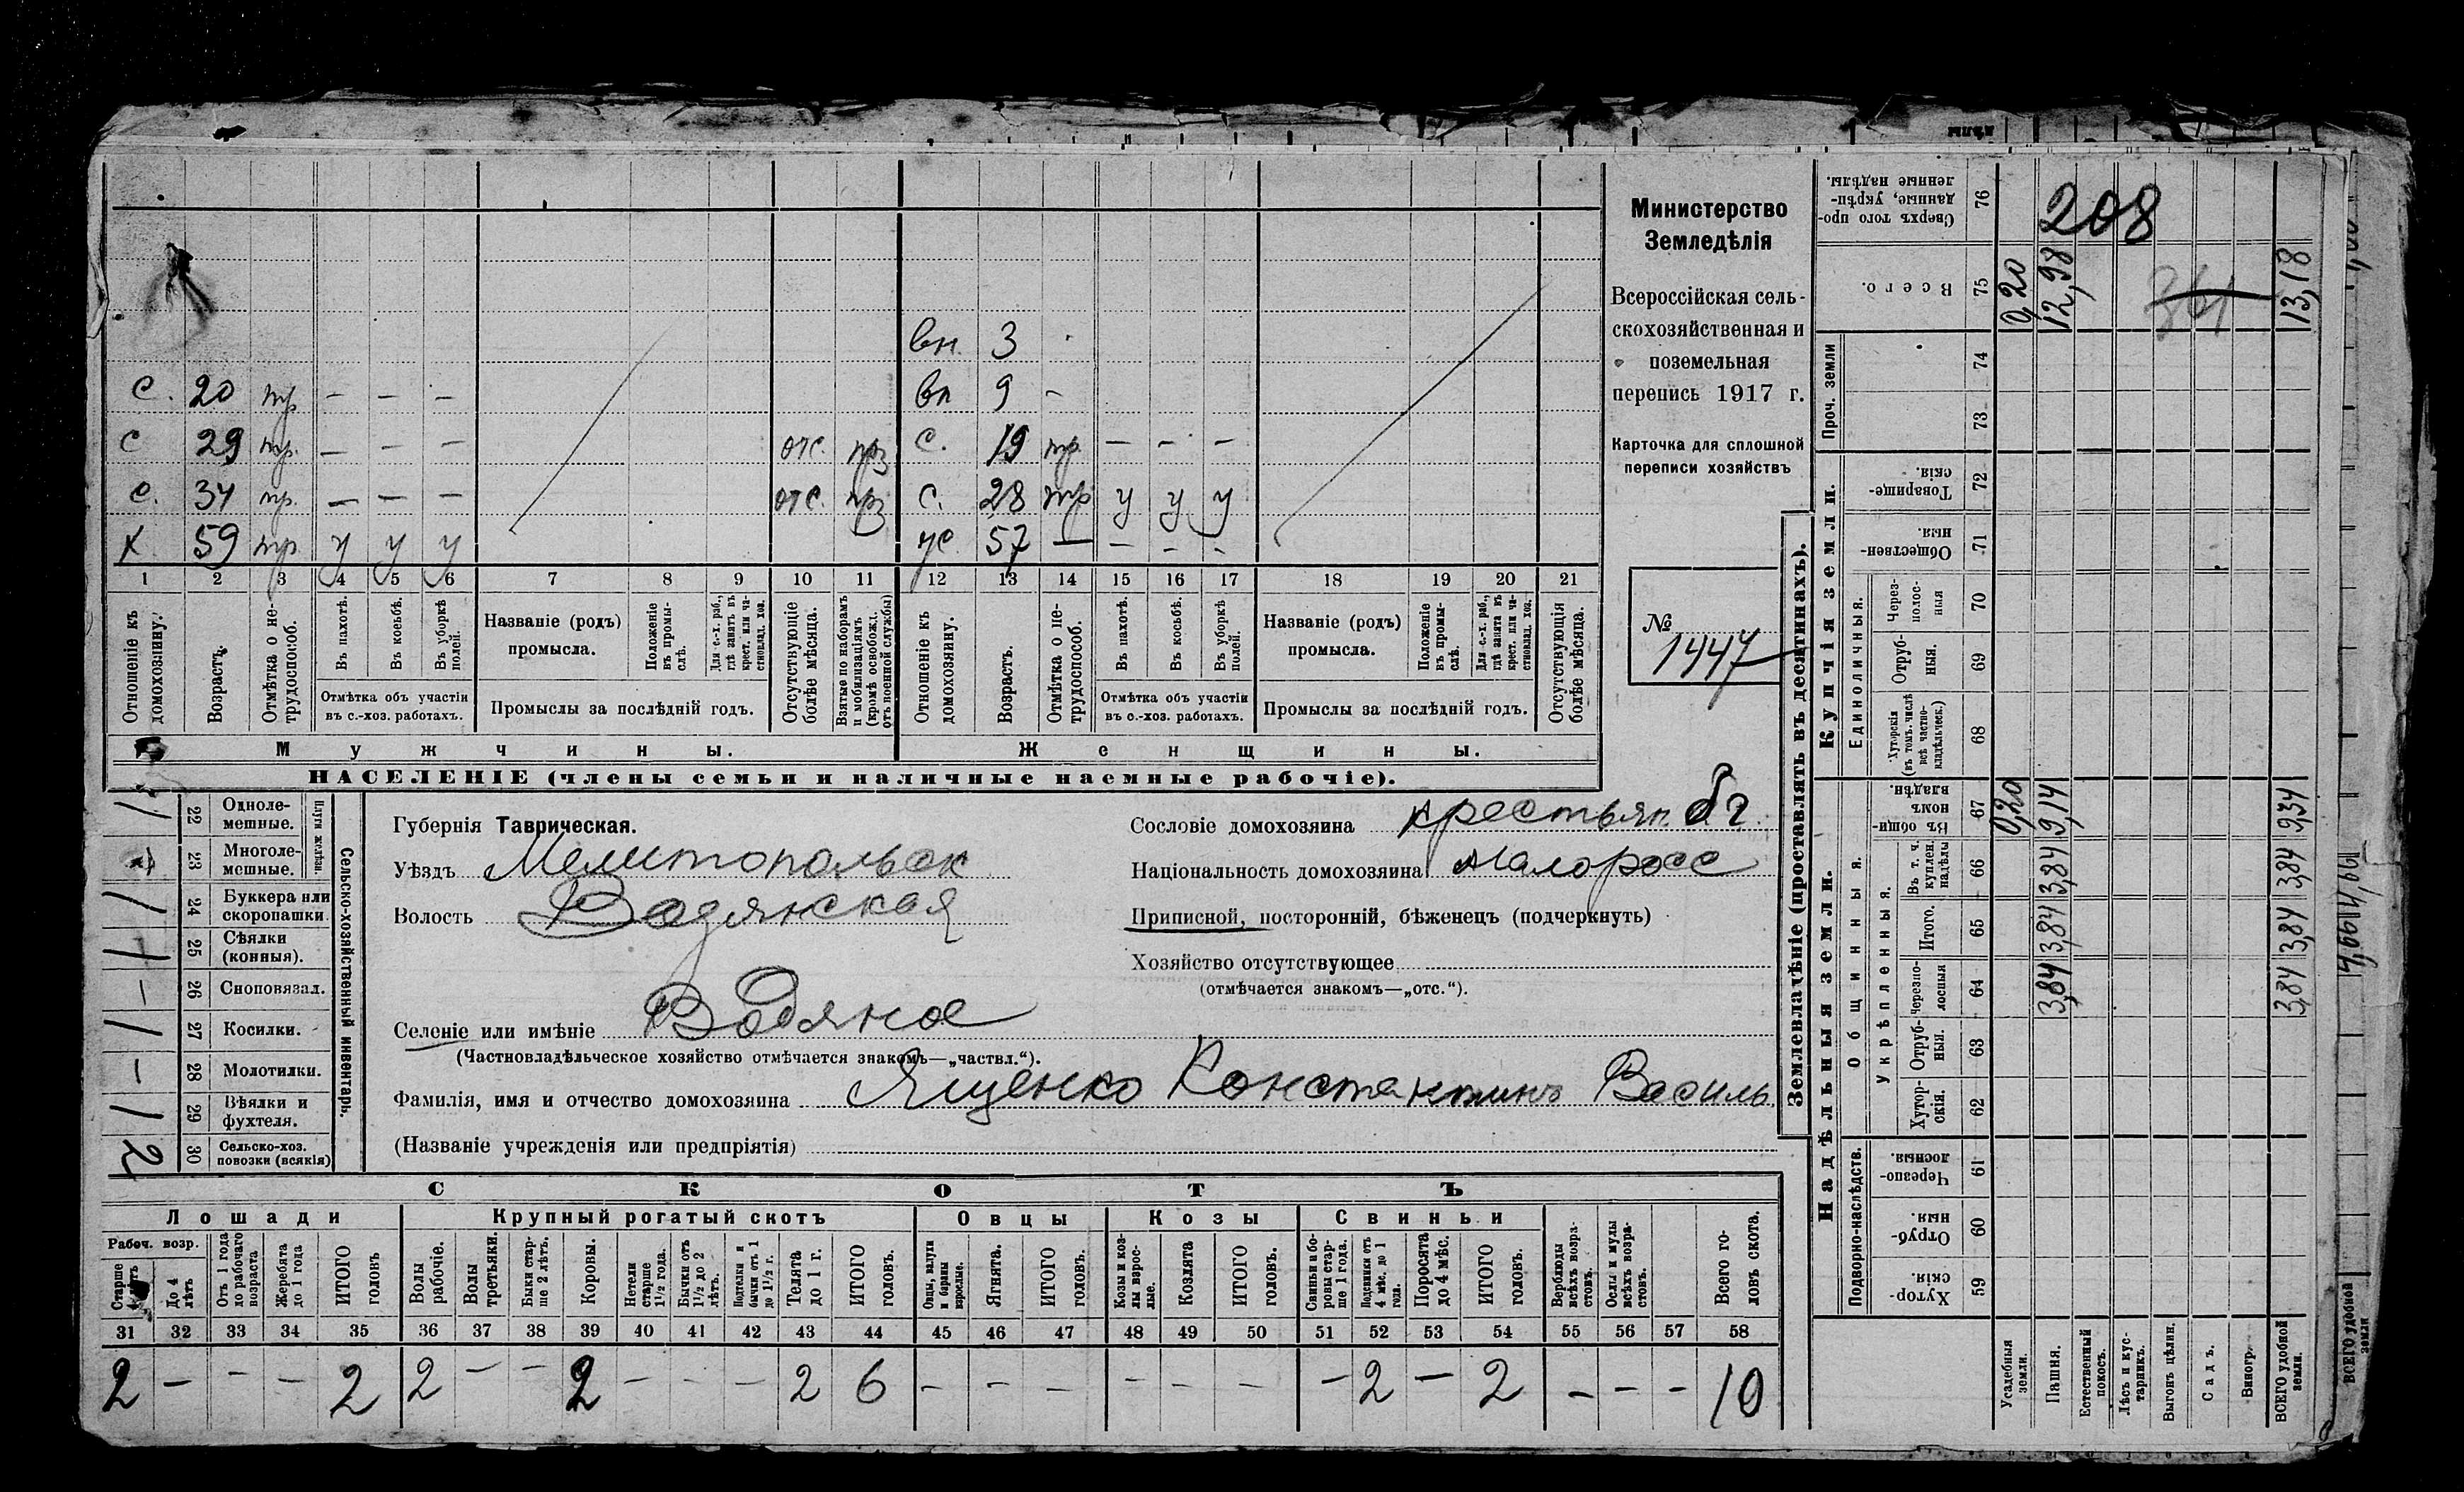 вн. 3
с. 20 тр. - - - вн 9 -
с 29 тр. - - - отс. прз с. 19 тр. - - -
с. 34 тр. - - - отс. прз с. 28 тр у у у
х. 59 тр у у у 57 - - - -
1 2 3 4 5 6 7 8 9 10 11 12 13 14 15 16 17 18 19 20 21
Отношеніе къ домохозяину.
Возрастъ.
Отмѣтка о не-трудоспособ.
Въ пахотѣ.
Въ косьбѣ.
Въ уборкѣ полей.
Отмѣтка объ участіи
въ с.-хоз. работахъ.
Названіе (родъ)
промысла.
Положеніе въ промы-слѣ.
Для с.-х. раб., гдѣ занятъ въ крест. или ча-стновлад. хоз.
Промыслы за послѣдній годъ.
Отсутствующіе болѣе мѣсяца.
Взятые по наборамъ и мобилизаціямъ (кромѣ освобожд. отъ военной службы)
Отношеніе къ домохозяину.
Возрастъ.
Отмѣтка о не-трудоспособ.
Въ пахотѣ.
Въ косьбѣ.
Въ уборкѣ полей.
Отмѣтка объ участіи
въ с.-хоз. работахъ.
Названіе (родъ)
промысла.
Положеніе въ промы-слѣ.
Для с.-х. раб., гдѣ занята въ крест. или ча-стновлад. хоз.
Промыслы за послѣдній годъ.
Отсутствующія болѣе мѣсяца.
Мужчины. Женщины.
НАСЕЛЕНІЕ (члены семьи и наличные наемные рабочіе).
Министерство
Земледѣлія
Всероссійская сель-
скохозяйственная и
поземельная
перепись 1917 г.
Карточка для сплошной
переписи хозяйствъ
№
1447
Сельско-хозяйственный инвентарь.
Плуги желѣзн.
1 22 Одноле-мешные.
23 Многоле-мешные.
1 24 Буккера или скоропашки.
1 25 Сѣялки (конныя).
- 26 Сноповязал.
1 27 Косилки.
- 28 Молотилки.
1 29 Вѣялки и фухтеля.
2 30 Сельско-хоз. повозки (всякія)
Губернія Таврическая.
Уѣздъ Мелитопольск
Волость Водянская
Селеніе или имѣніе Водяное
(Частновладѣльческое хозяйство отмѣчается знакомъ—„частвл.“).
Фамилія, имя и отчество домохозяина Ященко Константинъ Василь
(Названіе учрежденія или предпріятія)
Сословіе домохозяина крестьян.
Національность домохозяина малоросс
Приписной, посторонній, бѣженецъ (подчеркнуть)
Хозяйство отсутствующее
(отмѣчается знакомъ—„отс.“).
СКОТЪ
Лошади Крупный рогатый скотъ Овцы Козы Свиньи
Рабоч. возр.
Старше 4 лѣтъ
До 4 лѣтъ
Отъ 1 года до рабочаго возраста
Жеребята до 1 года
ИТОГО головъ
Волы рабочіе.
Волы третьяки.
Быки стар-ше 2 лѣтъ.
Коровы.
Нетели старше 1½ года.
Бычки отъ 1½ до 2 лѣтъ.
Подтелки и бычки отъ 1 до 1½ г.
Телята до 1 г.
ИТОГО головъ.
Овцы, валухи и бараны взрослые.
Ягнята.
ИТОГО головъ.
Козы и коз-лы взрос-лые.
Козлята
ИТОГО головъ.
Свиньи и бо-ровы стар-ше 1 года.
Подсвинки отъ 4 мѣс. до 1 года.
Поросята до 4 мѣс.
ИТОГО головъ.
Верблюды всѣхъ возра-стовъ.
Ослы и мулы всѣхъ возра-стовъ.
Всего го-ловъ скота.
31 32 33 34 35 36 37 38 39 40 41 42 43 44 45 46 47 48 49 50 51 52 53 54 55 56 57 58
2 - - - 2 2 - - 2 - - - 2 6 - - - - - - - 2 - 2 - - - 10
Землевладѣніе (проставлять въ десятинахъ).
Надѣльныя земли. Купчія земли.
Подворно-наслѣдств.
Общинныя.
Укрѣпленныя.
Единоличныя.
Проч. земли
Сверхъ того про-данные, укрѣп-ленные надѣлы. 76
208
Всего. 75 0,20 12,98 13,18
74
73
Товарище-скія. 72
Обществен-ныя 71
Через-полос-ныя 70
Отруб-ныя. 69
Хуторскія (въ томъ числѣ всѣ частно-владѣльческ.) 68
Въ общин-номъ владѣн. 67 0,20 9,14 9,34
Въ т. ч. куплен. надѣлы 66 3,84 3,84
Итого. 65 3,84 3,84
Черезпо-лосныя 64 3,84 3,84
Отруб-ныя. 63
Хутор-скія. 62
Черезпо-лосныя. 61
Отруб-ныя. 60
Хутор-скія. 59
Усадебныя земли.
Пашня.
Естественный покосъ.
Лѣсъ и кус-тарникъ.
Выгонъ цѣлин.
Садъ.
Виногр.
ВСЕГО удобной земли.
ВСЕГО удобной земли